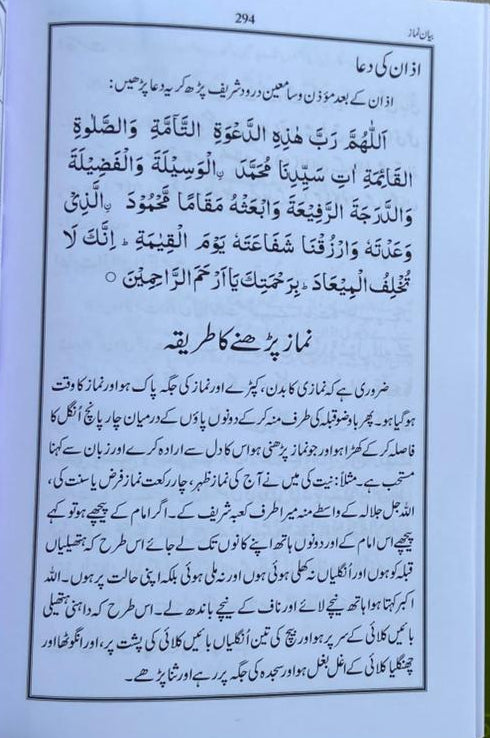 294
بیان نماز
اذان کی دعا
اذان کے بعد مؤذن و سامعین درود شریف پڑھ کر یہ دعا پڑھیں:
اَللّٰهُمَّ رَبَّ هٰذِهِ الدَّعْوَةِ التَّآمَّةِ وَالصَّلٰوةِ
الْقَآئِمَةِ اٰتِ سَيِّدَنَا مُحَمَّدَ نِ الْوَسِيْلَةَ وَالْفَضِيْلَةَ
وَالدَّرَجَةَ الرَّفِيْعَةَ وَابْعَثْهُ مَقَامًا مَّحْمُوْدَ نِ الَّذِيْ
وَعَدْتَّهٗ وَارْزُقْنَا شَفَاعَتَهٗ يَوْمَ الْقِيٰمَةِ ط اِنَّكَ لَا
تُخْلِفُ الْمِيْعَادَ ط بِرَحْمَتِكَ يَا اَرْحَمَ الرَّاحِمِيْنَ ○
نماز پڑھنے کا طریقہ
ضروری ہے کہ نمازی کا بدن، کپڑے اور نماز کی جگہ پاک ہو اور نماز کا وقت
ہو گیا ہو۔ پھر باوضو قبلہ کی طرف منہ کر کے دونوں پاؤں کے درمیان چار پانچ اُنگل کا
فاصلہ کر کے کھڑا ہو اور جو نماز پڑھنی ہو اس کا دل سے ارادہ کرے اور زبان سے کہنا
مستحب ہے۔ مثلاً: نیت کی میں نے آج کی نماز ظہر، چار رکعت نماز فرض یا سنت کی،
اللہ جل جلالہ کے واسطے منہ میرا طرف کعبہ شریف کے۔ اگر امام کے پیچھے ہو تو کہے
پیچھے اس امام کے اور دونوں ہاتھ اپنے کانوں تک لے جائے اس طرح کہ ہتھیلیاں
قبلہ کو ہوں اور اُنگلیاں نہ کھلی ہوئی ہوں اور نہ ملی ہوئی بلکہ اپنی حالت پر ہوں۔ اللہ
اکبر کہتا ہوا ہاتھ نیچے لائے اور ناف کے نیچے باندھ لے۔ اس طرح کہ داہنی ہتھیلی
بائیں کلائی کے سر پر ہو اور بیچ کی تین اُنگلیاں بائیں کلائی کی پشت پر، اور انگوٹھا اور
چھنگلیا کلائی کے اغل بغل ہو اور سجدہ کی جگہ پر رہے اور ثنا پڑھے۔